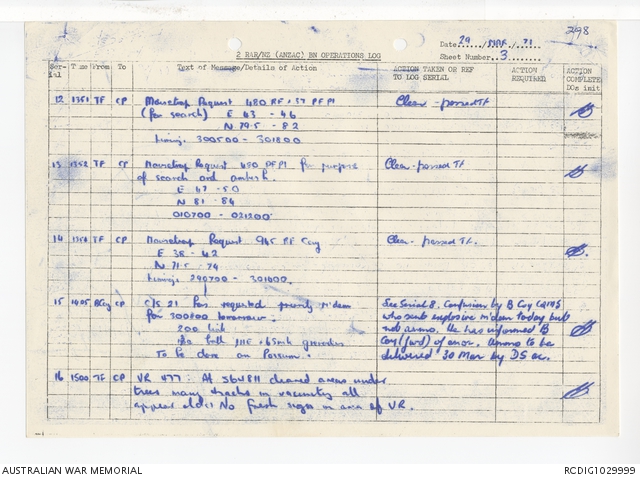 298
Date 29 / MAR / 71
2 RAR/NZ (ANZAC) BN OPERATIONS LOG
Sheet Number 3
Ser-ial Time From To Text of Message/Details of Action ACTION TAKEN OR REF TO LOG SERIAL ACTION REQUIRED ACTION COMPLETE DOs init
12 1351 TF CP Mousetrap Request 480 RF + 37 PF Pl Clear - passed TF
(for search) E 43 - 46
N 79.5 - 82
timing. 300500 - 301800
13 1352 TF CP Mousetrap Request 450 PF Pl for purpose Clear - passed TF
of search and ambush.
E 47 - 50
N 81 - 84
010700 - 021200
14 TF CP Mousetrap Request 945 RF Coy Clear - passed TF.
E 38 - 42
N 71.5 - 74
timing: 290700 - 301000.
15 1405 B Coy CP C/S 21 has requested priority m'dem
for 300800 tomorrow.
200 link
both HE + 65mb grenades
To be done on Possum.
See Serial 8. Confusion by B Coy CQMS
who sent explosive m'dem today but
not ammo. He has informed B
Coy (fwd) of error. Ammo to be
delivered 30 Mar by DS ac.
16 1500 TF CP VR 477: At 564811 cleared areas under
trees many tracks in vacinity all
appear old. No fresh signs in area of VR.
AUSTRALIAN WAR MEMORIAL
RCDIG1029999